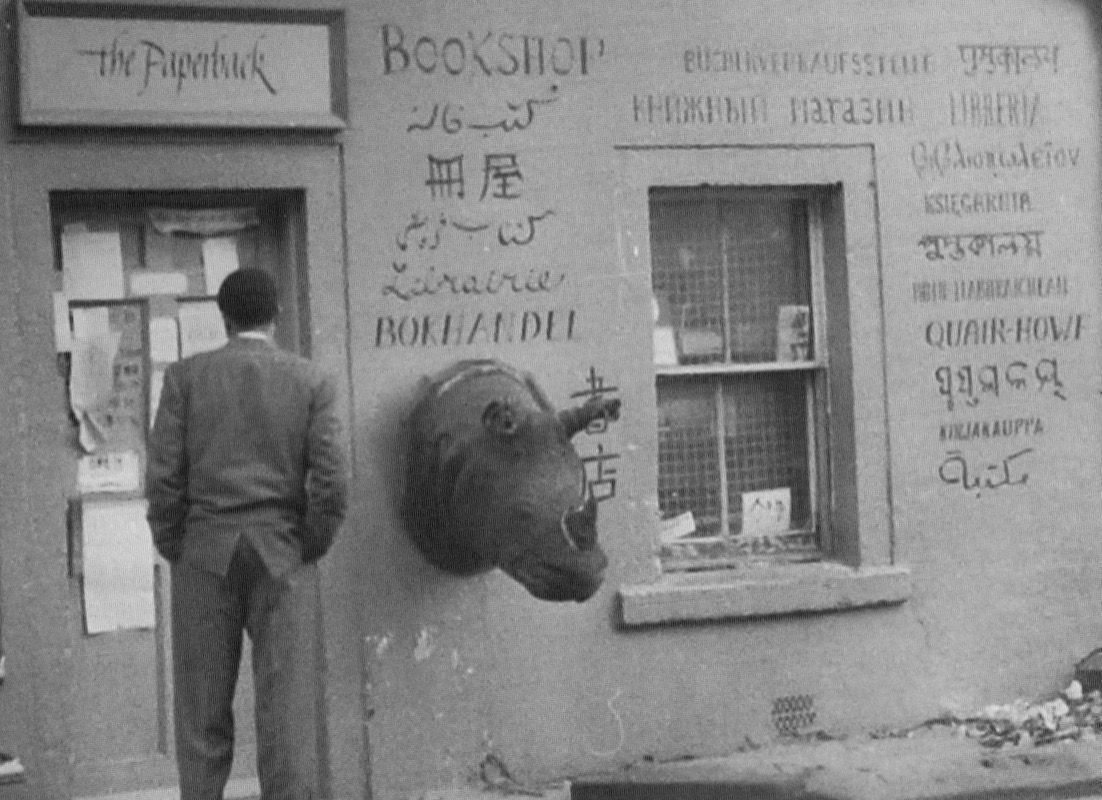 the Paperback
BOOKSHOP
کتب خانہ
冊屋
کتاب فروشی
Librairie
BOKHANDEL
書店
BUCHERVERKAUFSSTELLE पुस्तकालय
КНИЖНЫЙ магазин LIBRERIA
βιβλιοπωλεῖον
KSIĘGARNIA
পুস্তকালয়
QUAIR-HOWF
KIRJAKAUPPA
مكتبة
ONLY